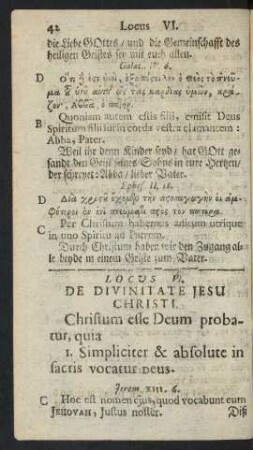 42 Locus VI.
die Liebe GOttes / und die Gemeinschafft des
heiligen Geistes sey mit euch allen.
Galat. IV. 6.
D
C Quoniam autem estis filii, emisit Deus
Spiritum filii sui in corda vestra clamantem :
Abba, Pater.
B Weil ihr denn Kinder seyd / hat GOtt ge-
sandt den Geist seines Sohns in eure Hertzen /
der schreyet: Abba / lieber Vater.
Ephes. II, 18.
D
C Per Christum habemus aditum utrique
in uno Spiritu ad Patrem.
Durch Christum haben wir den Zugang al-
le beyde in einem Geiste zum Vater.
LOCUS VI.
DE DIVINITATE JESU
CHRISTI.
Christum esse Deum proba-
tur, quia
1. Simpliciter & absolute in
sacris vocatur DEUS.
Jerem. XIII. 6.
C Hoc est nomen ejus, quod vocabunt eum
JEHOVAH, Justus noster. Diß